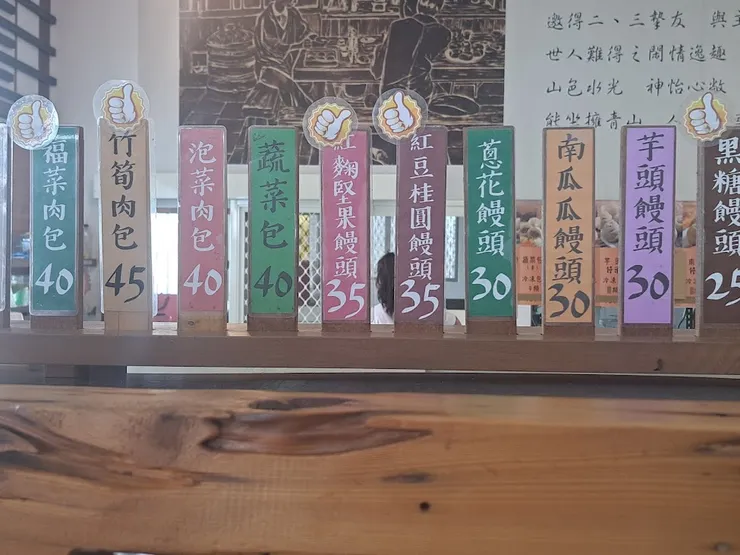 邀得二、三摯友 與
世人難得之閒情逸趣
山色水光 神怡心
能坐擁青山 人
福菜肉包
40
竹筍肉包
45
泡菜肉包
40
蔬菜包
40
紅麴堅果饅頭
35
紅豆桂圓饅頭
35
蔥花饅頭
30
南瓜瓜饅頭
30
芋頭饅頭
30
黑糖饅頭
25